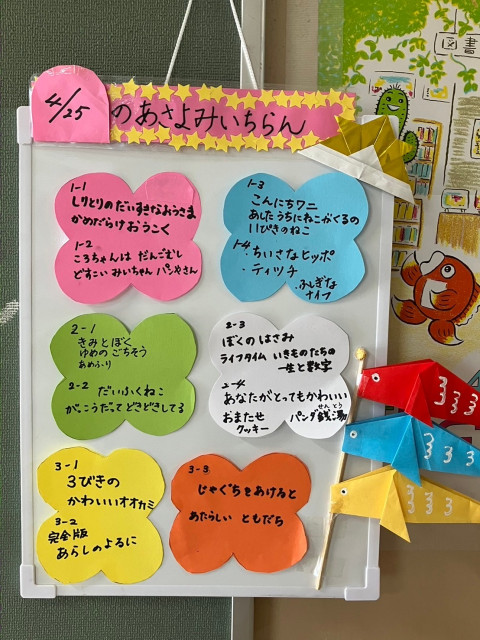 4/25
のあさよみいちらん
図書
1-1
しりとりのだいすきなおうさま
かめだらけおうこく
1-2
こうちゃんは だんごむし
どすこい みいちゃん パンやさん
1-3
こんにちワニ
あしたうちにねこがくるの
いびきのねこ
1-4 ・ちいさなヒッポ
・ティッチ
・ふしぎな
ナイフ
2-1
きみとぼく
ゆめの ごちそう
あめふり
2-2 だいふくねこ
がっこうだって どきどきしてる
2-3
ぼくの はさみ
ライフタイム いきものたちの
一生と数字
2-4
あなたがとってもかわいい
おまたせ
クッキー
パンダ銭湯
せんとう
3-1
3びきの
かわいいオオカミ
3-2
完全版
あらしのよるに
3-3
じゃぐちをあけると
あたらしい ともだち